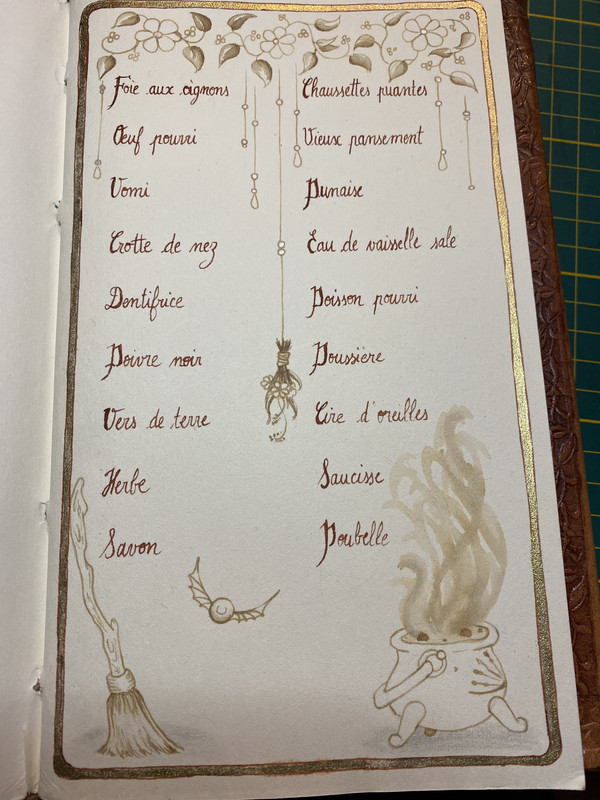 Foie aux oignons
Œuf pourri
Vomi
Crotte de nez
Dentifrice
Poivre noir
Vers de terre
Herbe
Savon
Chaussettes puantes
Vieux pansement
Punaise
Eau de vaisselle sale
Poisson pourri
Poussière
Cire d'oreilles
Saucisse
Poubelle